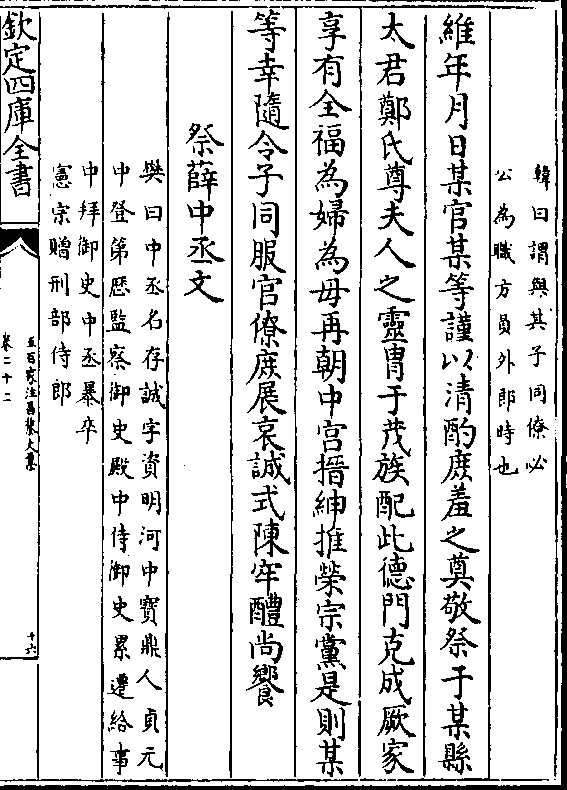 韓曰謂與其子同僚必
公為職方員外郎時也
維年月日某官某等謹以清酌庶羞之奠敬祭于某縣
太君鄭氏尊夫人之靈胄于茂族配此德門克成厥家
享有全福為婦為母再朝中宮搢紳推榮宗黨是則某
等幸隨令子同服官僚庶展哀誠式陳牢醴尚饗
祭薛中丞文
樊曰中丞名存誠字資明河中寶鼎人貞元
中登第歷監察御史殿中侍御史累遷給事
中拜御史中丞暴卒
憲宗贈刑部侍郎
欽定四庫全書
五百家注昌黎文集
卷二十二
十六